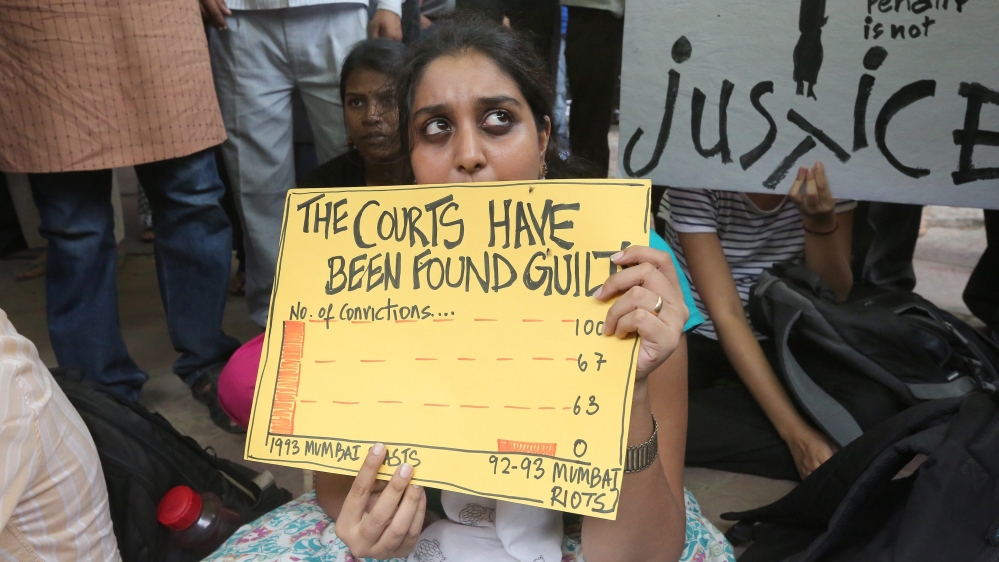 THE COURTS HAVE
BEEN FOUND GUILT
No. of Convictions....
100
67
63
0
1993 MUMBAI ASTS
92-93 MUMBAI
RIOTS
Penalty
is not
justice